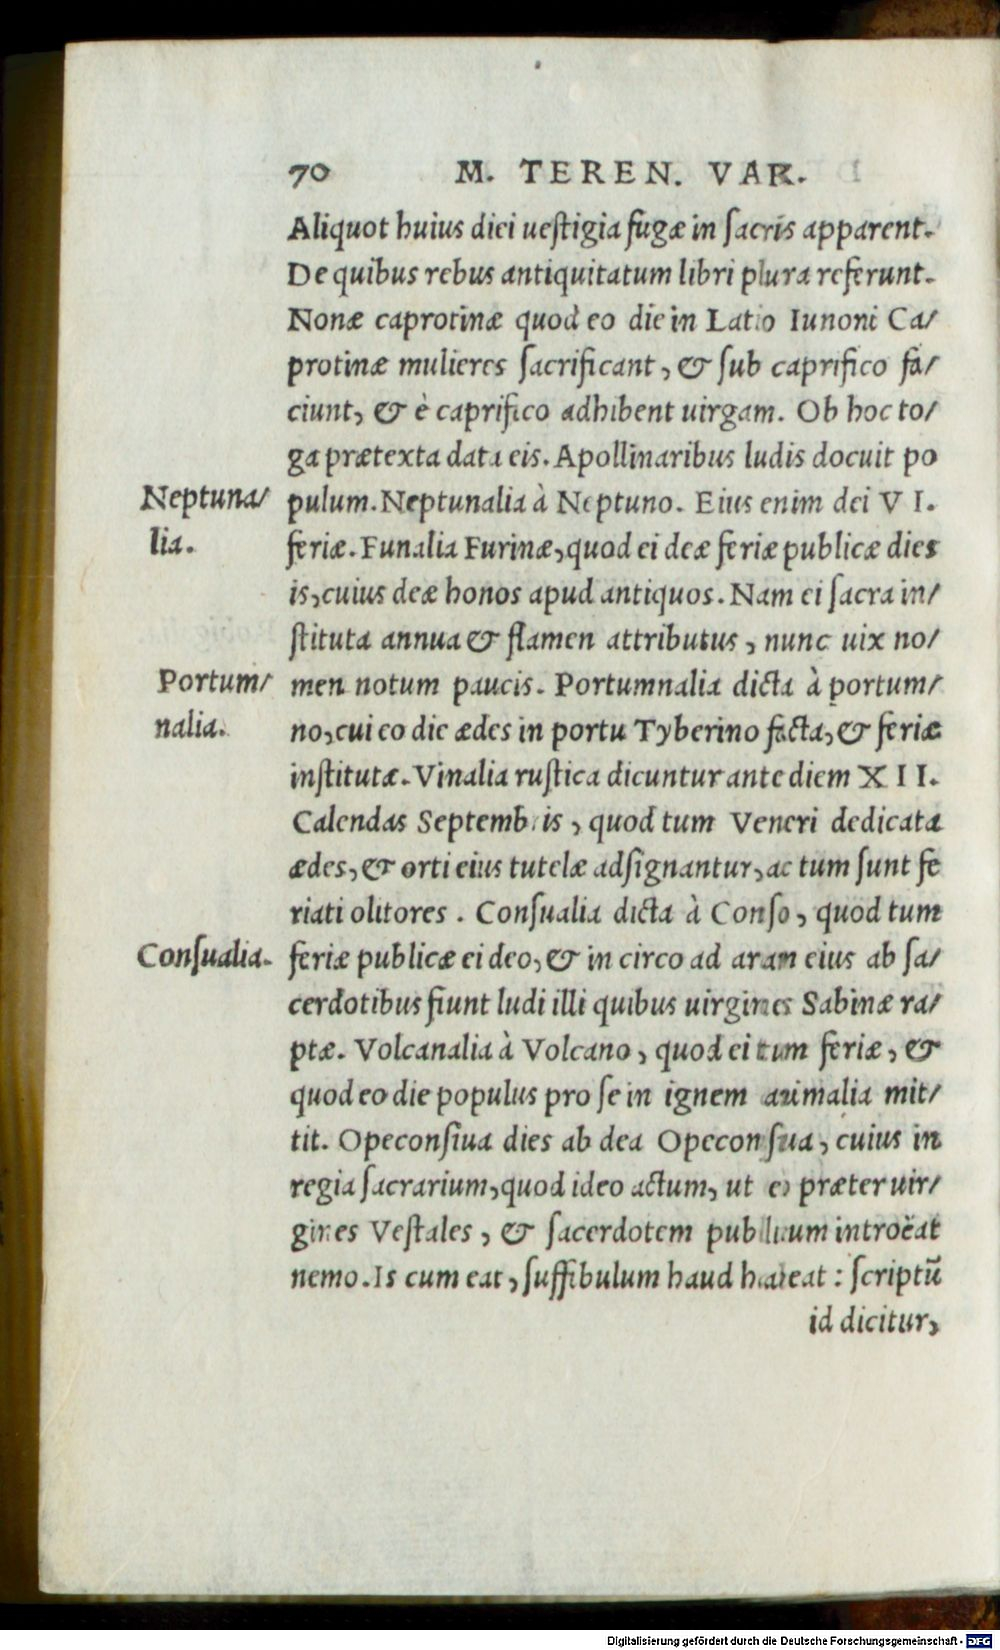 70 M. TEREN. VAR.
Aliquot huius diei ueſtigia fugæ in ſacris apparent.
De quibus rebus antiquitatum libri plura referunt.
Nonæ caprotinæ quod eo die in Latio Iunoni Ca/
protinæ mulieres ſacrificant, & ſub caprifico fa/
ciunt, & è caprifico adhibent uirgam. Ob hoc to/
ga prætexta data eis. Apollinaribus ludis docuit po
Neptuna/
pulum. Neptunalia à Neptuno. Eius enim dei V I.
lia.
feriæ. Funalia Furinæ, quod ei deæ feriæ publicæ dies
is, cuius deæ honos apud antiquos. Nam ei ſacra in/
ſtituta annua & flamen attributus, nunc uix no/
Portum/
men notum paucis. Portumnalia dicta à portum/
nalia.
no, cui eo die ædes in portu Tyberino facta, & feriæ
inſtitutæ. Vinalia ruſtica dicuntur ante diem X I I.
Calendas Septembris, quod tum Veneri dedicata
ædes, & orti eius tutelæ adſignantur, ac tum ſunt fe
riati olitores. Conſualia dicta à Conſo, quod tum
Conſualia.
feriæ publicæ ei deo, & in circo ad aram eius ab ſa/
cerdotibus fiunt ludi illi quibus uirgines Sabinæ ra/
ptæ. Volcanalia à Volcano, quod ei tum feriæ, &
quod eo die populus pro ſe in ignem animalia mit/
tit. Opeconſiua dies ab dea Opeconſiua, cuius in
regia ſacrarium, quod ideo actum, ut eò præter uir/
gines Veſtales, & ſacerdotem publicum introëat
nemo. Is cum eat, ſuffibulum haud habeat: ſcriptū
id dicitur,
Digitalisierung gefördert durch die Deutsche Forschungsgemeinschaft - DFG